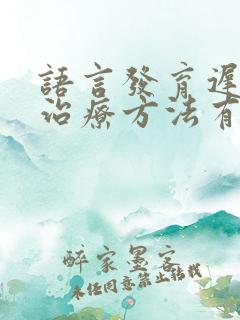 語言發育遲
治療方法有
醉家墨客
未经同意禁止转载